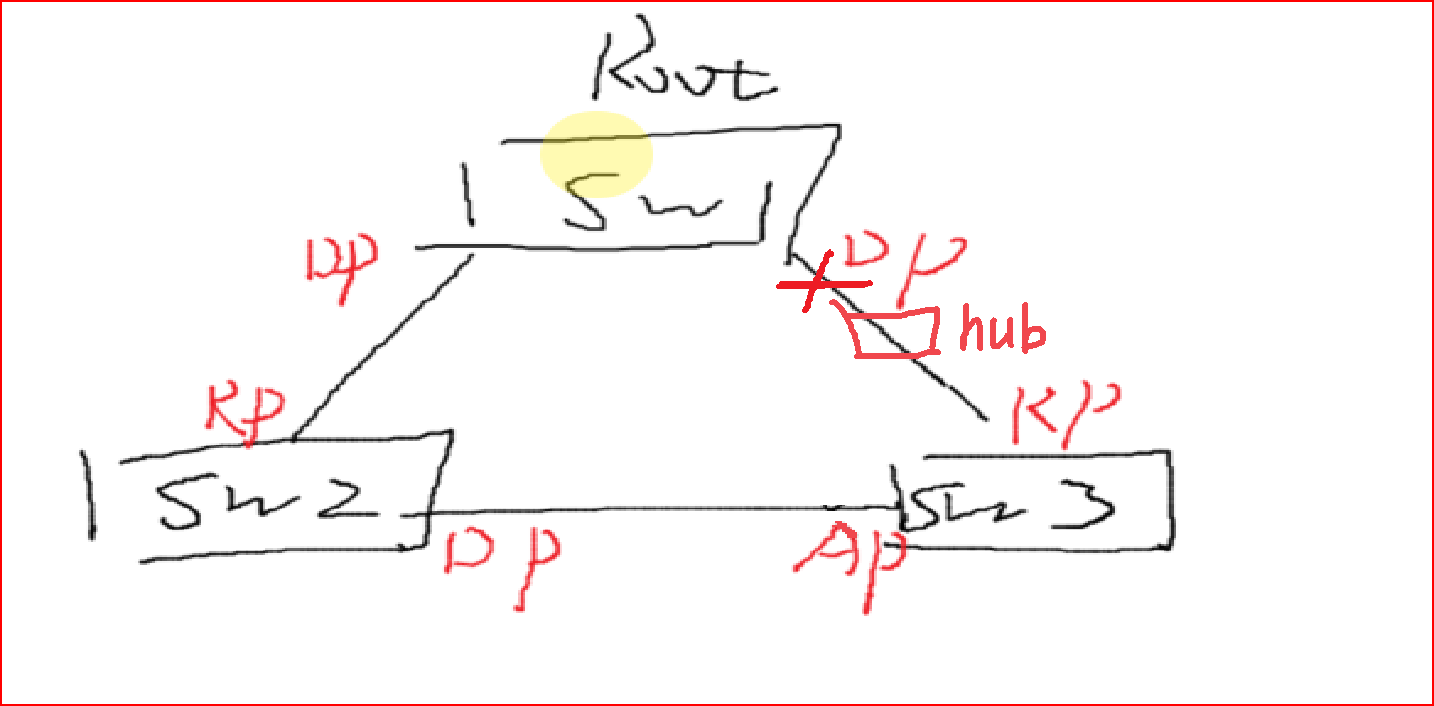 Root
SW1
DP
DP
hub
RP
RP
SW2
SW3
DP
AP